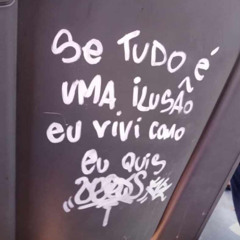 Se TUDO é
UMA iLUSÃO
eu vivi como
eu quis